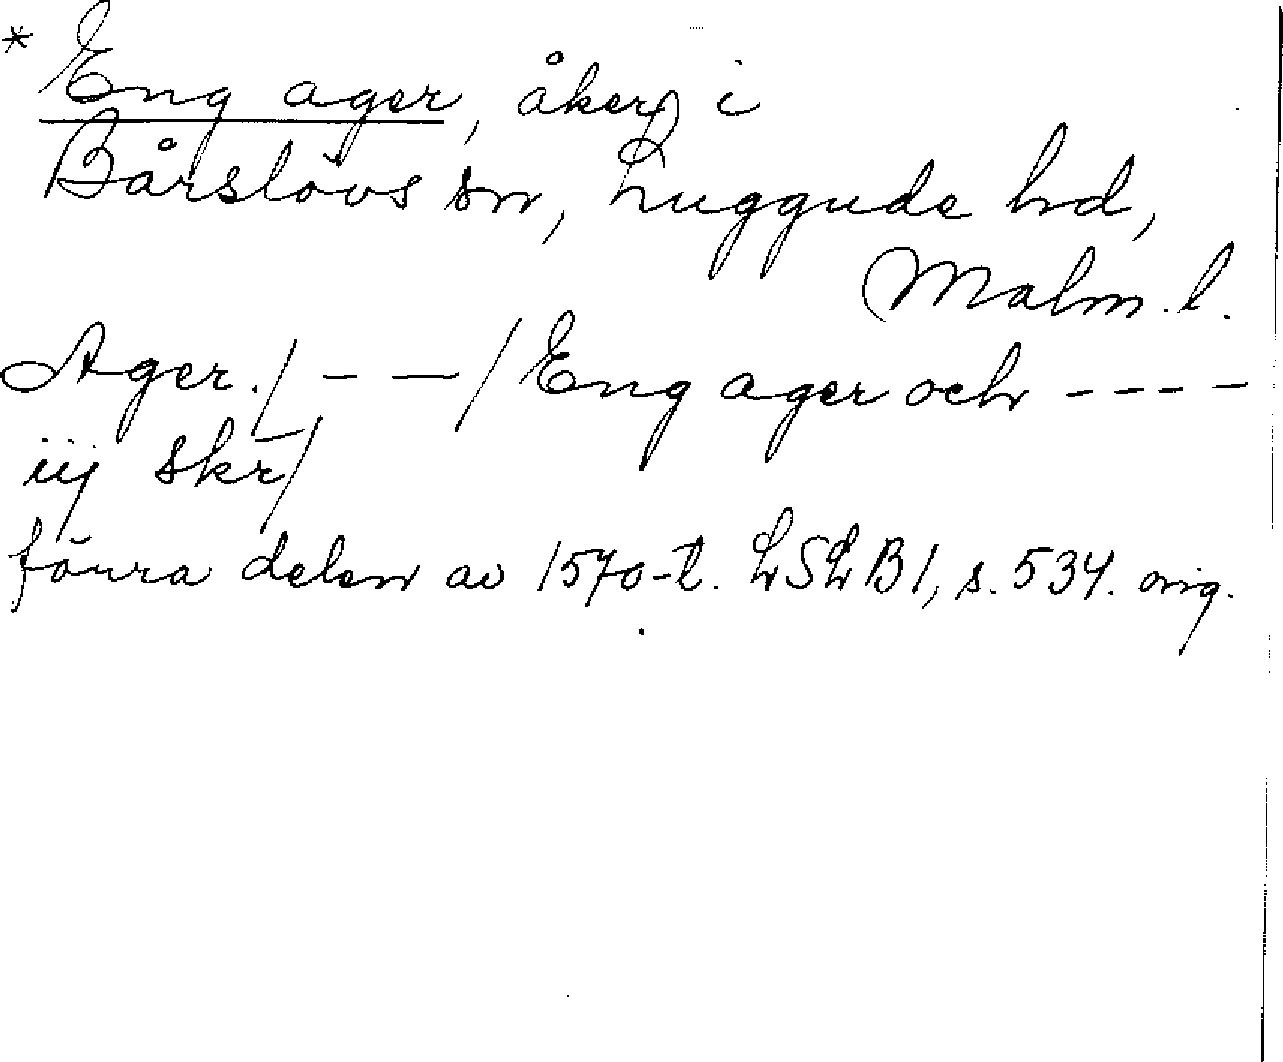 * Eng ager, åker, i
Bårslövs sn, Luggude hd,
Malm. l.
Ager. / - - / Eng ager och - - - -
iij skr /
förra delen av 1570-t. LSLB 1, s. 534. orig.